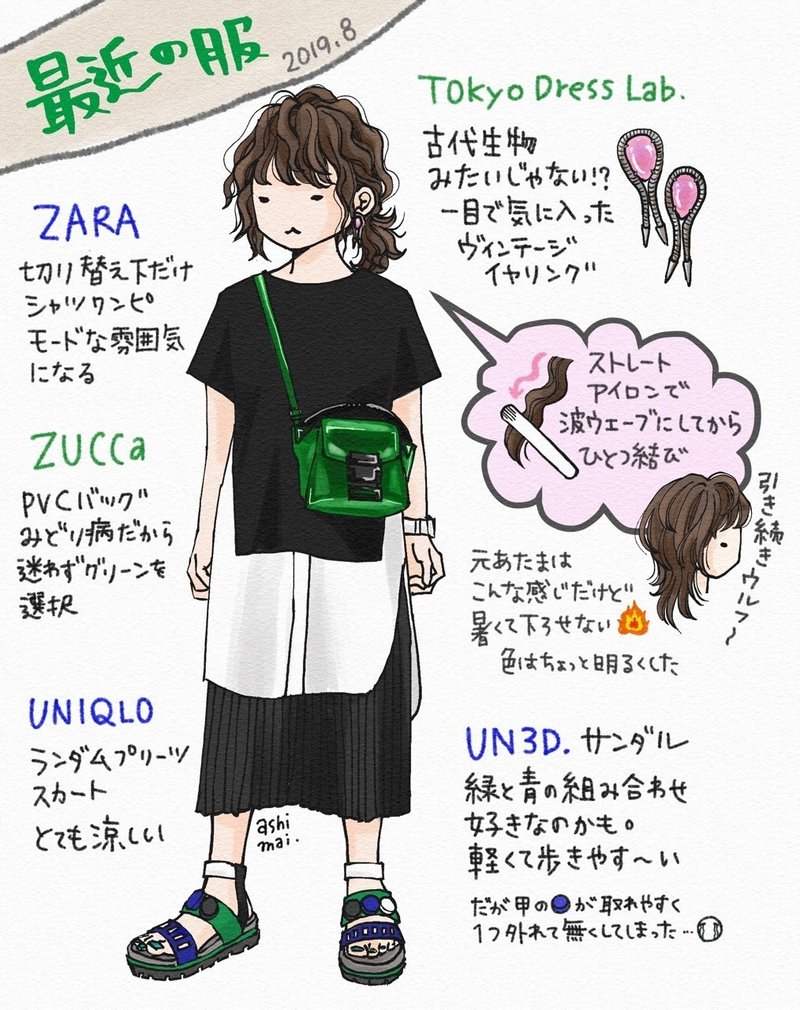 最近の服
2019.8
Tokyo Dress Lab.
古代生物
みたいじゃない!?
一目で気に入った
ヴィンテージ
イヤリング
ZARA
切り替え下だけ
シャツワンピ
モードな雰囲気
になる
ストレート
アイロンで
波ウエーブにしてから
ひとつ結び
ZUCCa
PVCバッグ
みどり病だから
迷わずグリーンを
選択
引き続きウルフ〜
元あたまは
こんな感じだけど
暑くて下ろせない
色はちょっと明るくした
UNIQLO
ランダムプリーツ
スカート
とても涼しい
UN3D. サンダル
緑と青の組み合わせ
好きなのかも。
軽くて歩きやす〜い
だが甲の が取れやすく
1つ外れて無くしてしまった…
ashi
mai.